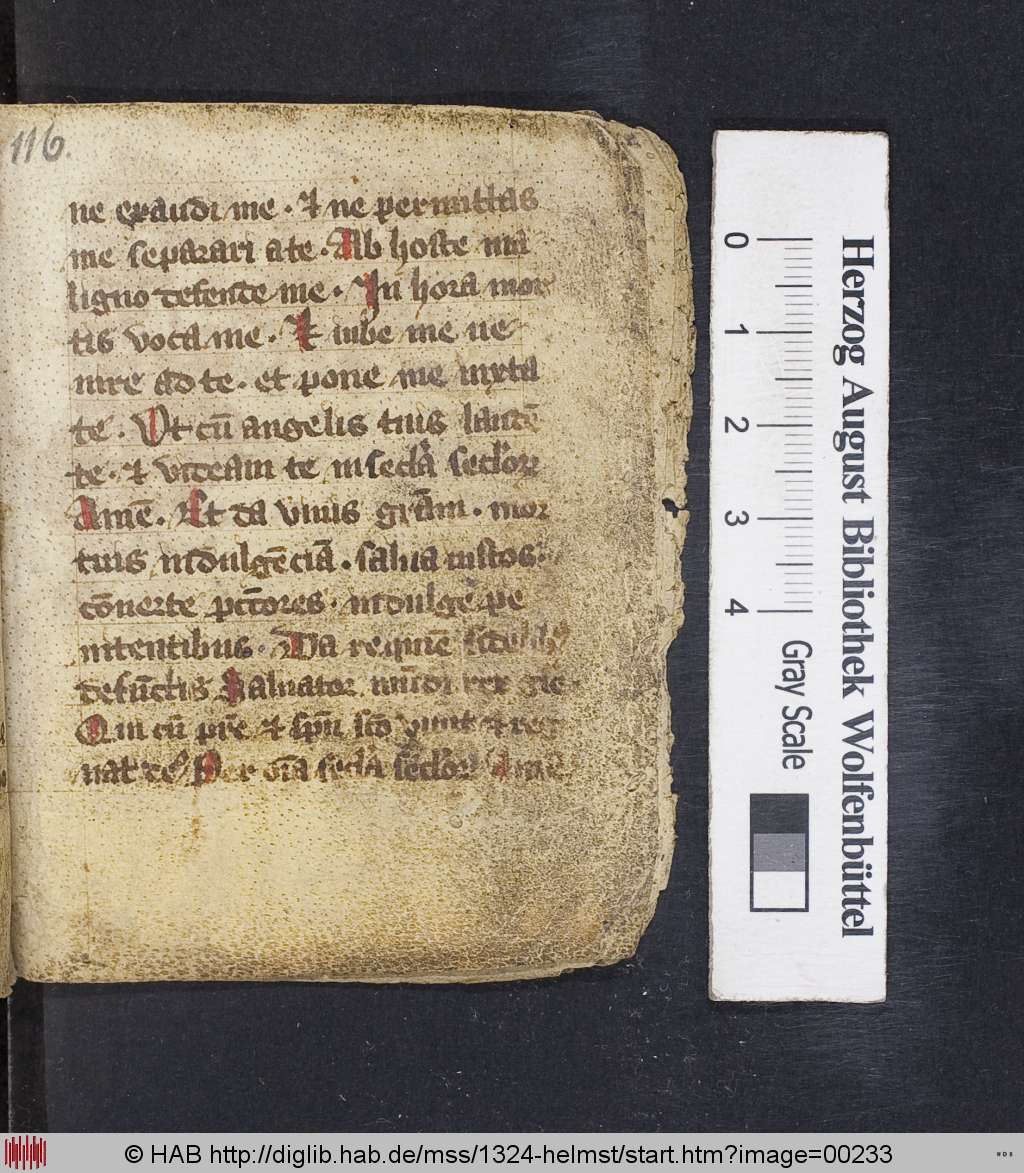 116.
ne exaudi me · ⁊ ne permittas
me separari a te · Ab hoste ma
ligno defende me · In hora mor
tis voca me · Et iube me ue
nire ad te · et pone me iuxta
te · Vt cū angelis tuis laudē
te · ⁊ videam te in secl̄a secl̄oꝝ
Amē · Et da viuis gr̄am · mor
tuis indulgēciā · salua iustos
cōuerte pctōres · indulge pe
nitentibus · Da requiē fidelib
defūctis Saluator mūdi rex gl̄e
Qui cū pr̄e ⁊ sp̄u sc̄o viuit ⁊ reg
nat de⁹ Per oīa secl̄a secl̄oꝝ Amē
Herzog August Bibliothek Wolfenbüttel
0 1 2 3 4
Gray Scale
© HAB http://diglib.hab.de/mss/1324-helmst/start.htm?image=00233